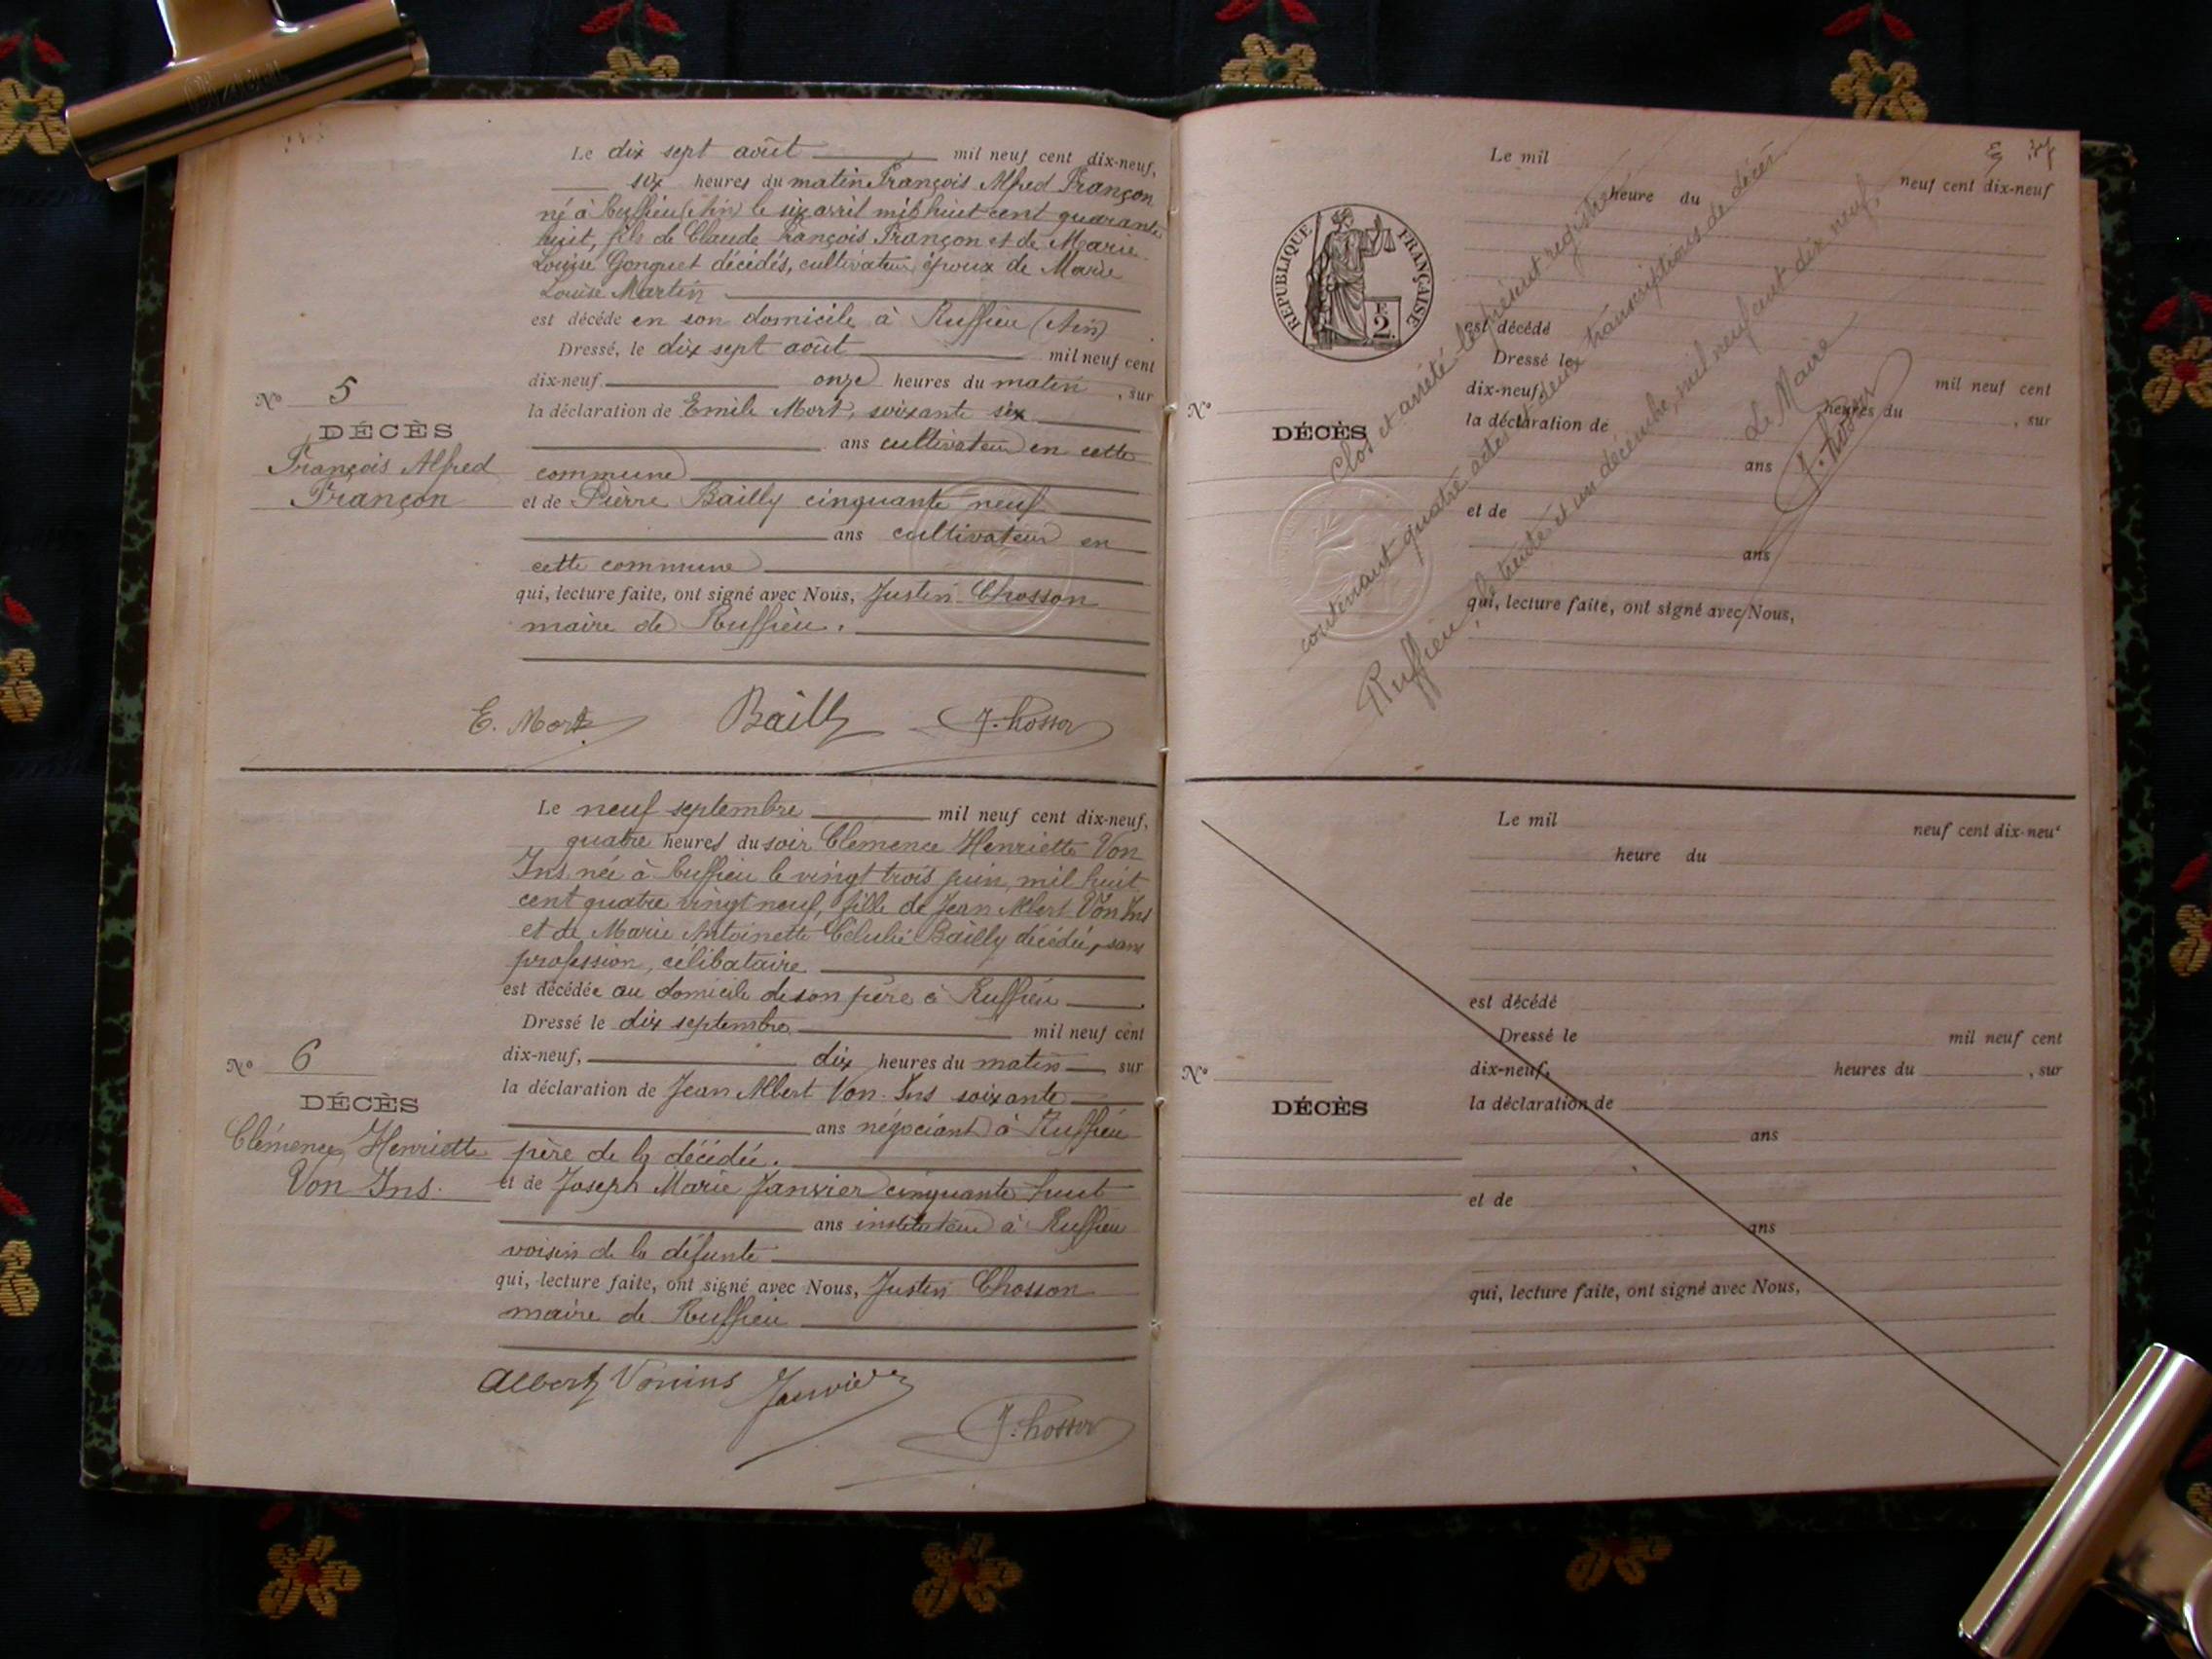 Le dix sept août mil neuf cent dix-neuf,
six heures du matin François Alfred Françon
né à Ruffieu (Ain) le six avril mil huit cent quarante
huit, fils de Claude François Françon et de Marie
Louise Gonguet décédés, cultivateur, époux de Marie
Louise Martin
est décédé en son domicile à Ruffieu (Ain)
Dressé, le dix sept août mil neuf cent
dix-neuf onze heures du matin, sur
la déclaration de Emile Mort, soixante six
ans cultivateur en cette
commune
et de Pierre Bailly cinquante neuf
ans cultivateur en
cette commune
qui, lecture faite, ont signé avec Nous, Justin Chosson
maire de Ruffieu.
E. Mort Bailly J. Chosson
N° 5
DÉCÈS
François Alfred
Françon
Le neuf septembre mil neuf cent dix-neuf,
quatre heures du soir Clémence Henriette Von
Ins née à Ruffieu le vingt trois juin, mil huit
cent quatre vingt neuf, fille de Jean Albert Von Ins
et de Marie Antoinette Bailly décédée, sans
profession, célibataire
est décédée au domicile de son père à Ruffieu
Dressé le dix septembre mil neuf cent
dix-neuf, dix heures du matin sur
la déclaration de Jean Albert Von Ins soixante
ans négociant à Ruffieu
père de la décédée.
et de Joseph Marie Janvier cinquante huit
ans instituteur à Ruffieu
voisin de la défunte
qui, lecture faite, ont signé avec Nous, Justin Chosson
maire de Ruffieu
Albert Vonins Janvier
J. Chosson
N° 6
DÉCÈS
Clémence Henriette
Von Ins.
Le mil
neuf cent dix-neuf
heure du
RÉPUBLIQUE FRANÇAISE
2
F.
est décédé
Dressé le
mil neuf cent
dix-neuf,
heures du , sur
la déclaration de
ans
et de
ans
qui, lecture faite, ont signé avec Nous,
N°
DÉCÈS
Clos et arrêté le présent registre
contenant quatre actes et deux transcriptions de décès.
Ruffieu, le trente et un décembre, mil neuf cent dix neuf.
Le Maire
J. Chosson
Le mil
neuf cent dix-neuf
heure du
est décédé
Dressé le mil neuf cent
dix-neuf, heures du , sur
la déclaration de
ans
et de
ans
qui, lecture faite, ont signé avec Nous,
N°
DÉCÈS